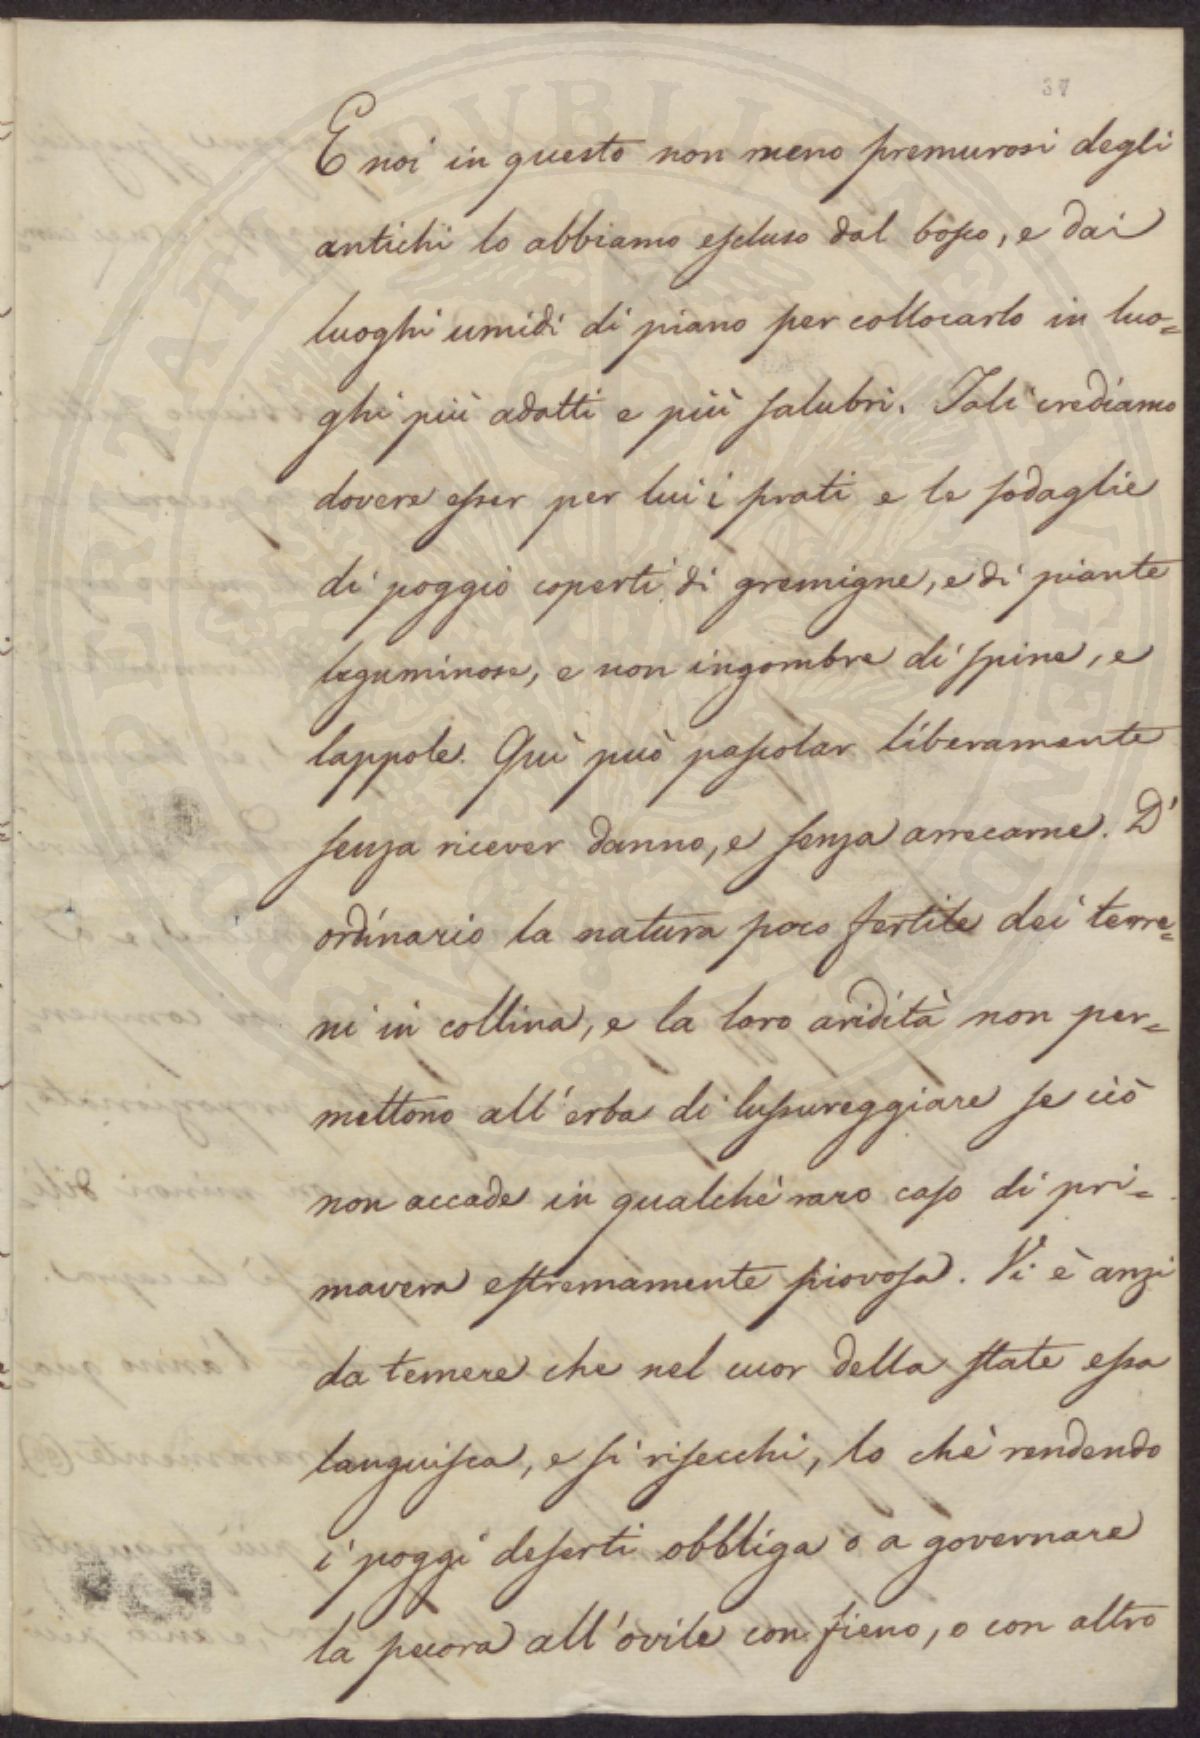 37
E noi in questo non meno premurosi degli
antichi lo abbiamo escluso dal bosco, e dai
luoghi umidi di piano per collocarlo in luo=
ghi più adatti e più salubri. Tali crediamo
dovere esser per lui i prati e le sodaglie
di poggio coperti di gremigne, e di piante
leguminose, e non ingombre di spine, e
lappole. Quì può pascolar liberamente
senza ricever danno, e senza arrecarne. D'
ordinario la natura poco fertile dei terre=
ni in collina, e la loro aridità non per=
mettono all'erba di lussureggiare se ciò
non accade in qualche raro caso di pri=
mavera estremamente piovosa. Vi è anzi
da temere che nel cuor della state essa
languisca, e si risecchi, lo che rendendo
i poggi deserti obbliga o a governare
la pecora all'ovile con fieno, o con altro